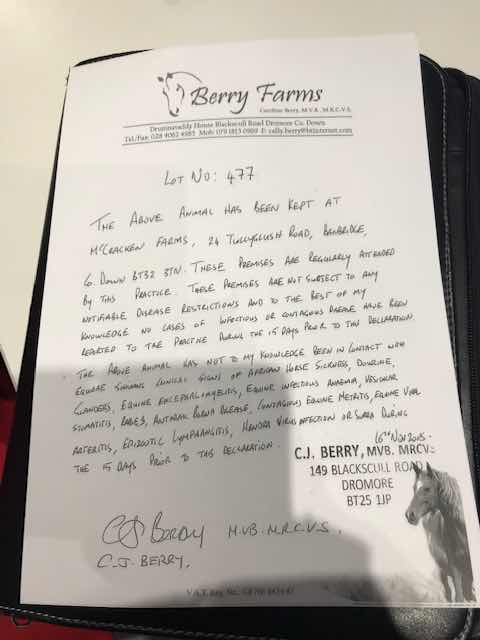 Berry Farms
Caroline Berry, M.V.B., M.R.C.V.S.
House Blackscull Road Dromore Co. Down
LOT NO: 477
THE ABOVE ANIMAL HAS BEEN KEPT AT
McCRACKEN FARMS, 24 TULLYGLUSH ROAD, BANBRIDGE,
CO. DOWN BT32 3TN. THESE PREMISES ARE REGULARLY ATTENDED
BY THIS PRACTICE. THESE PREMISES ARE NOT SUBJECT TO ANY
NOTIFIABLE DISEASE RESTRICTIONS AND TO THE BEST OF MY
KNOWLEDGE NO CASES OF INFECTIOUS OR CONTAGIOUS DISEASE HAVE BEEN
REPORTED TO THE PRACTICE DURING THE 15 DAYS PRIOR TO THIS DECLARATION.
THE ABOVE ANIMAL HAS NOT TO MY KNOWLEDGE BEEN IN CONTACT WITH
EQUIDAE SHOWING CLINICAL SIGNS OF AFRICAN HORSE SICKNESS, DOURINE,
GLANDERS, EQUINE ENCEPHALOMYELITIS, EQUINE INFECTIOUS ANAEMIA, VESICULAR
STOMATITIS, RABIES, ANTHRAX, BORNA DISEASE, CONTAGIOUS EQUINE METRITIS, EQUINE VIRAL
ARTERITIS, EPIZOOTIC LYMPHANGITIS, HENDRA VIRUS INFECTION OR SURRA DURING
THE 15 DAYS PRIOR TO THIS DECLARATION.
16TH NOV
C.J. BERRY, MVB. MRCVS
149 BLACKSCULL ROAD
DROMORE
BT25 1JP
CJ Berry M.V.B. M.R.C.V.S.
C.J. BERRY.
V.A.T. Reg. No.: GB